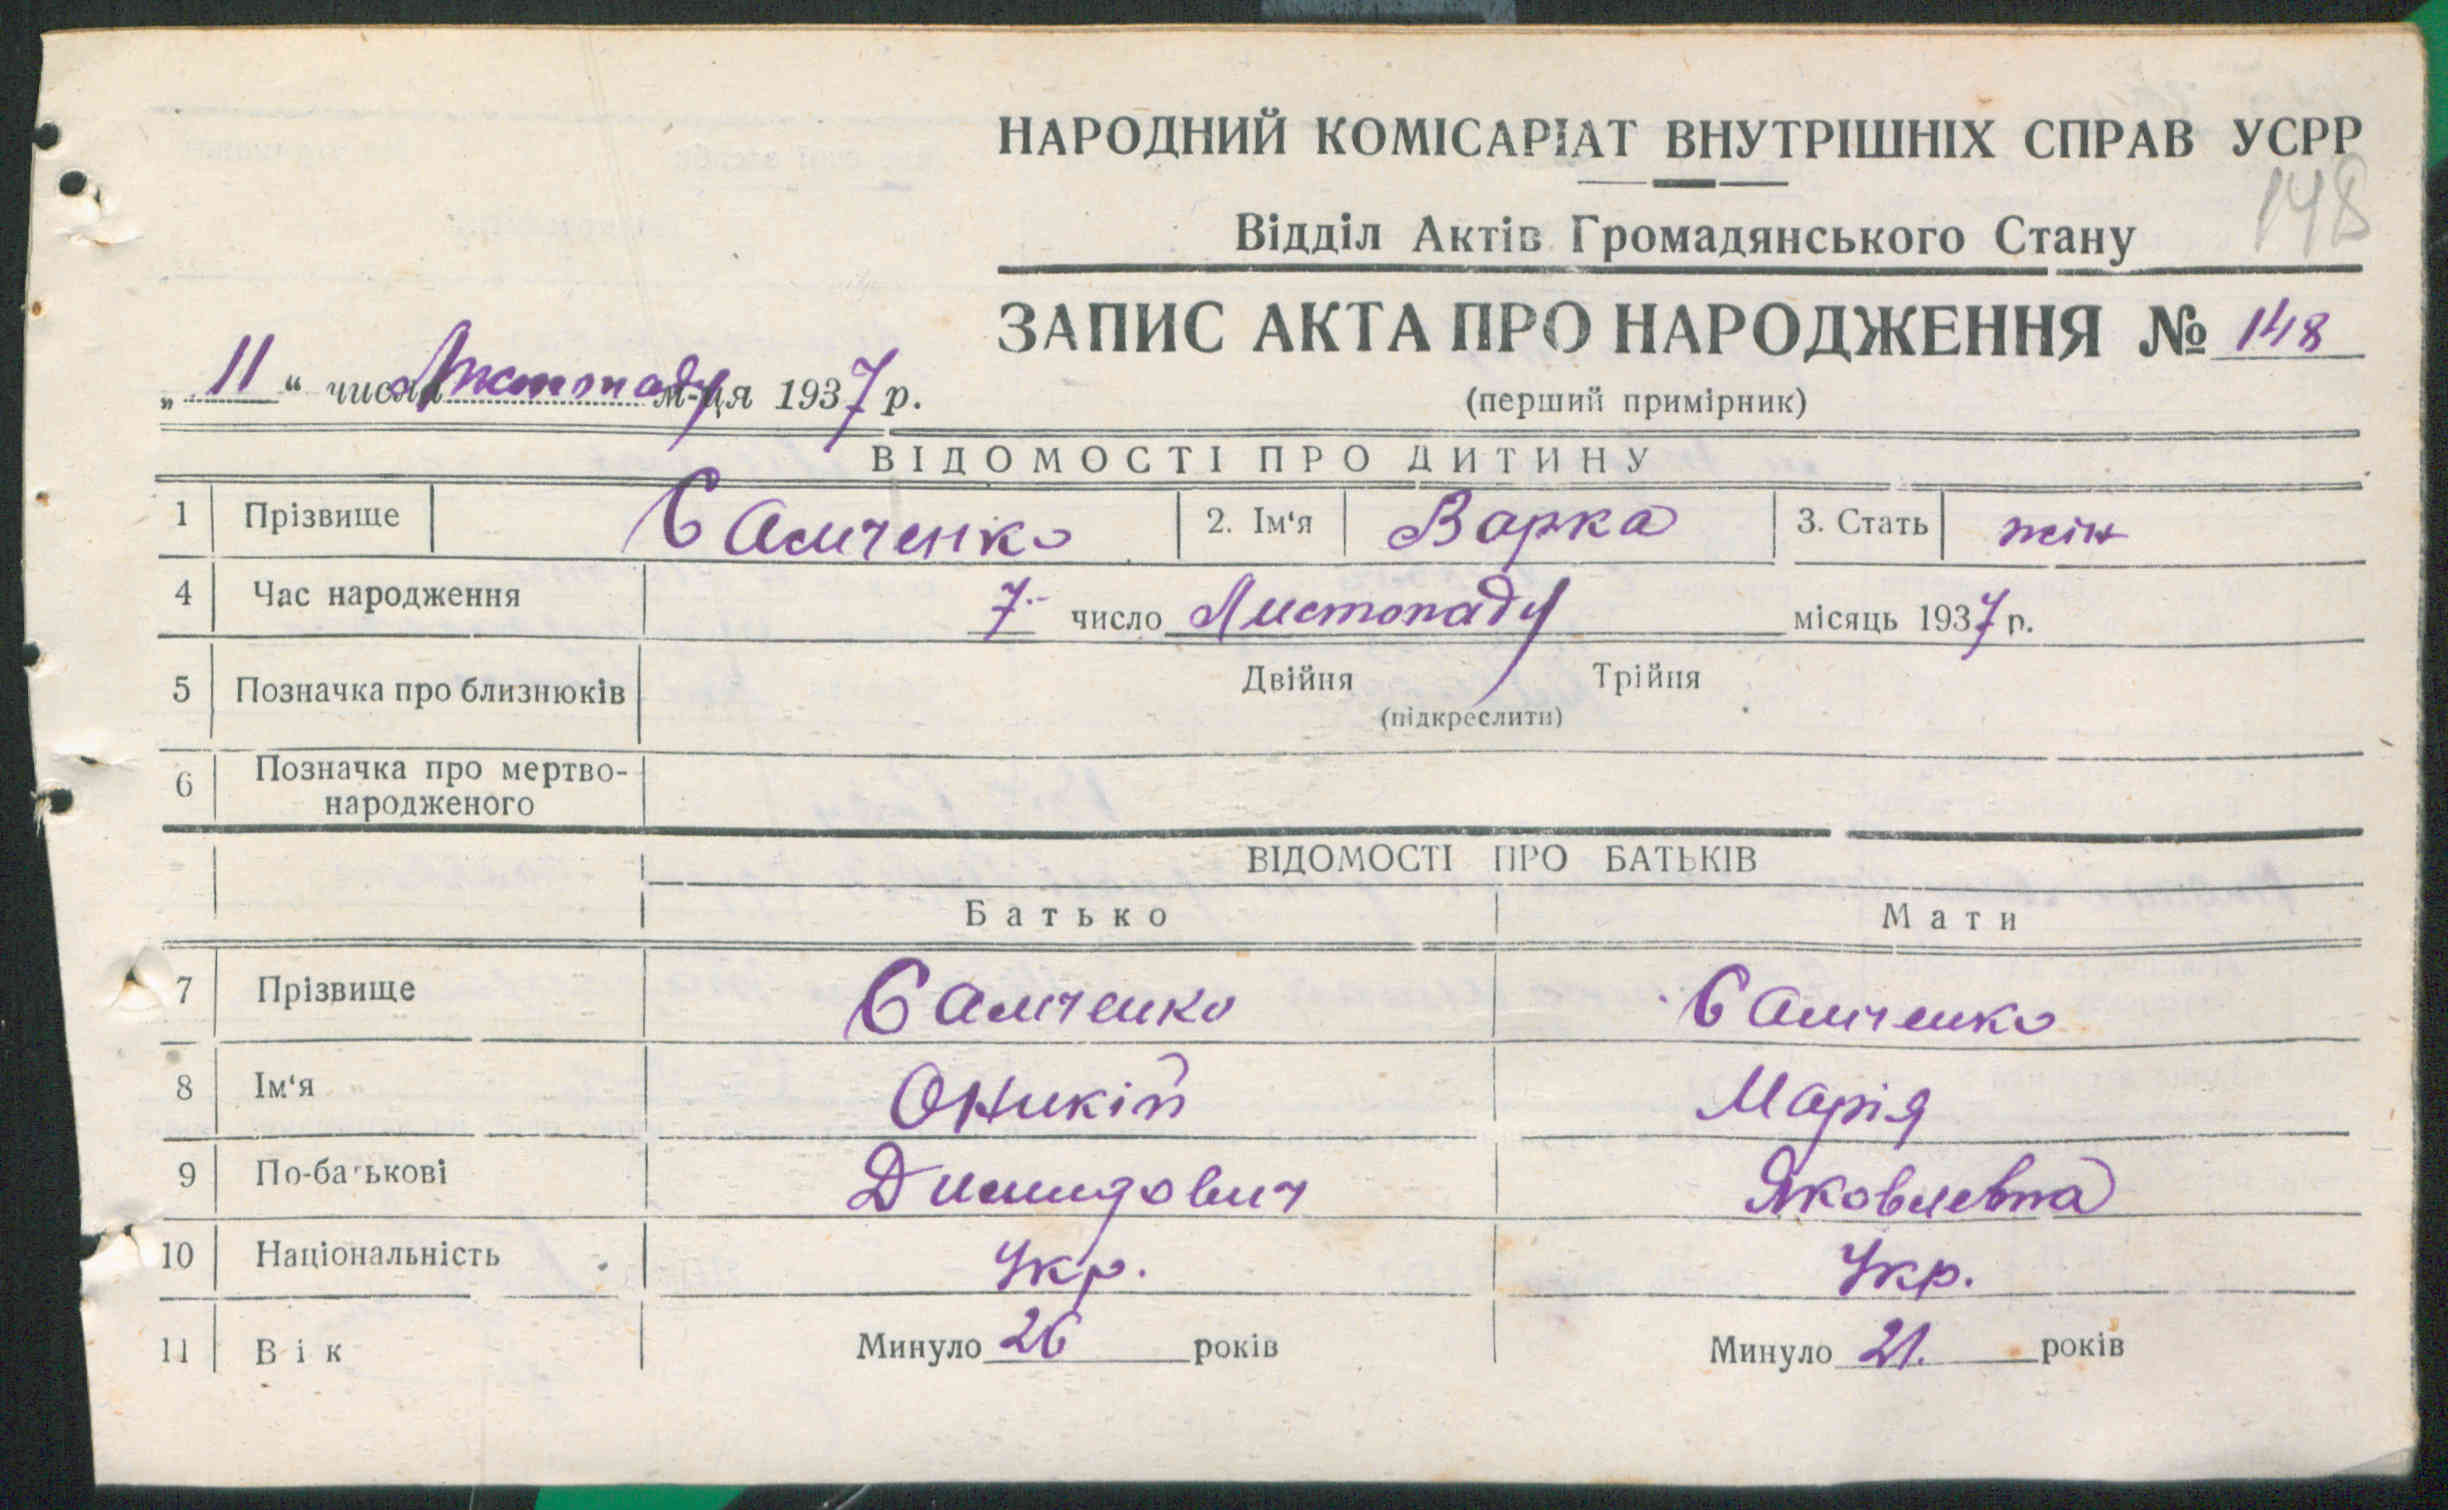 НАРОДНИЙ КОМІСАРІАТ ВНУТРІШНІХ СПРАВ УСРР
148
Відділ Актів Громадянського Стану
ЗАПИС АКТА ПРО НАРОДЖЕННЯ № 148
„11“ числа Листопаду м-ця 1937 р.
(перший примірник)
ВІДОМОСТІ ПРО ДИТИНУ
1 Прізвище Самченко 2. Ім‘я Варка 3. Стать жін
4 Час народження 7 число Листопаду місяць 1937 р.
5 Позначка про близнюків Двійня Трійня
(підкреслити)
6 Позначка про мертво-
народженого
ВІДОМОСТІ ПРО БАТЬКІВ
Батько Мати
7 Прізвище Самченко Самченко
8 Ім‘я Оникій Марія
9 По-батькові Димидович Яковлевна
10 Національність Укр. Укр.
11 Вік Минуло 26 років Минуло 21. років